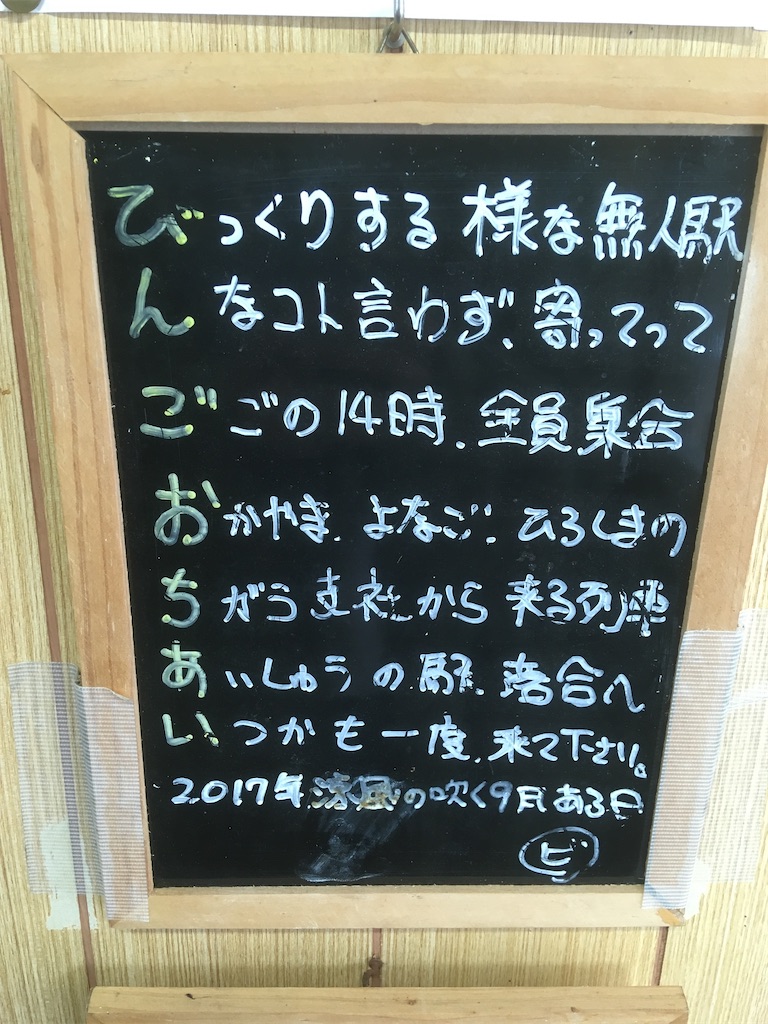 びっくりする様な無人駅
んなコト言わず、寄ってって
ごごの14時、全員集合
おかやま、よなご、ひろしまの
ちがう支社から来る列車
あいしゅうの駅、落合へ
いつかも一度、来て下さい。
2017年涼風の吹く9月ある日
ビ